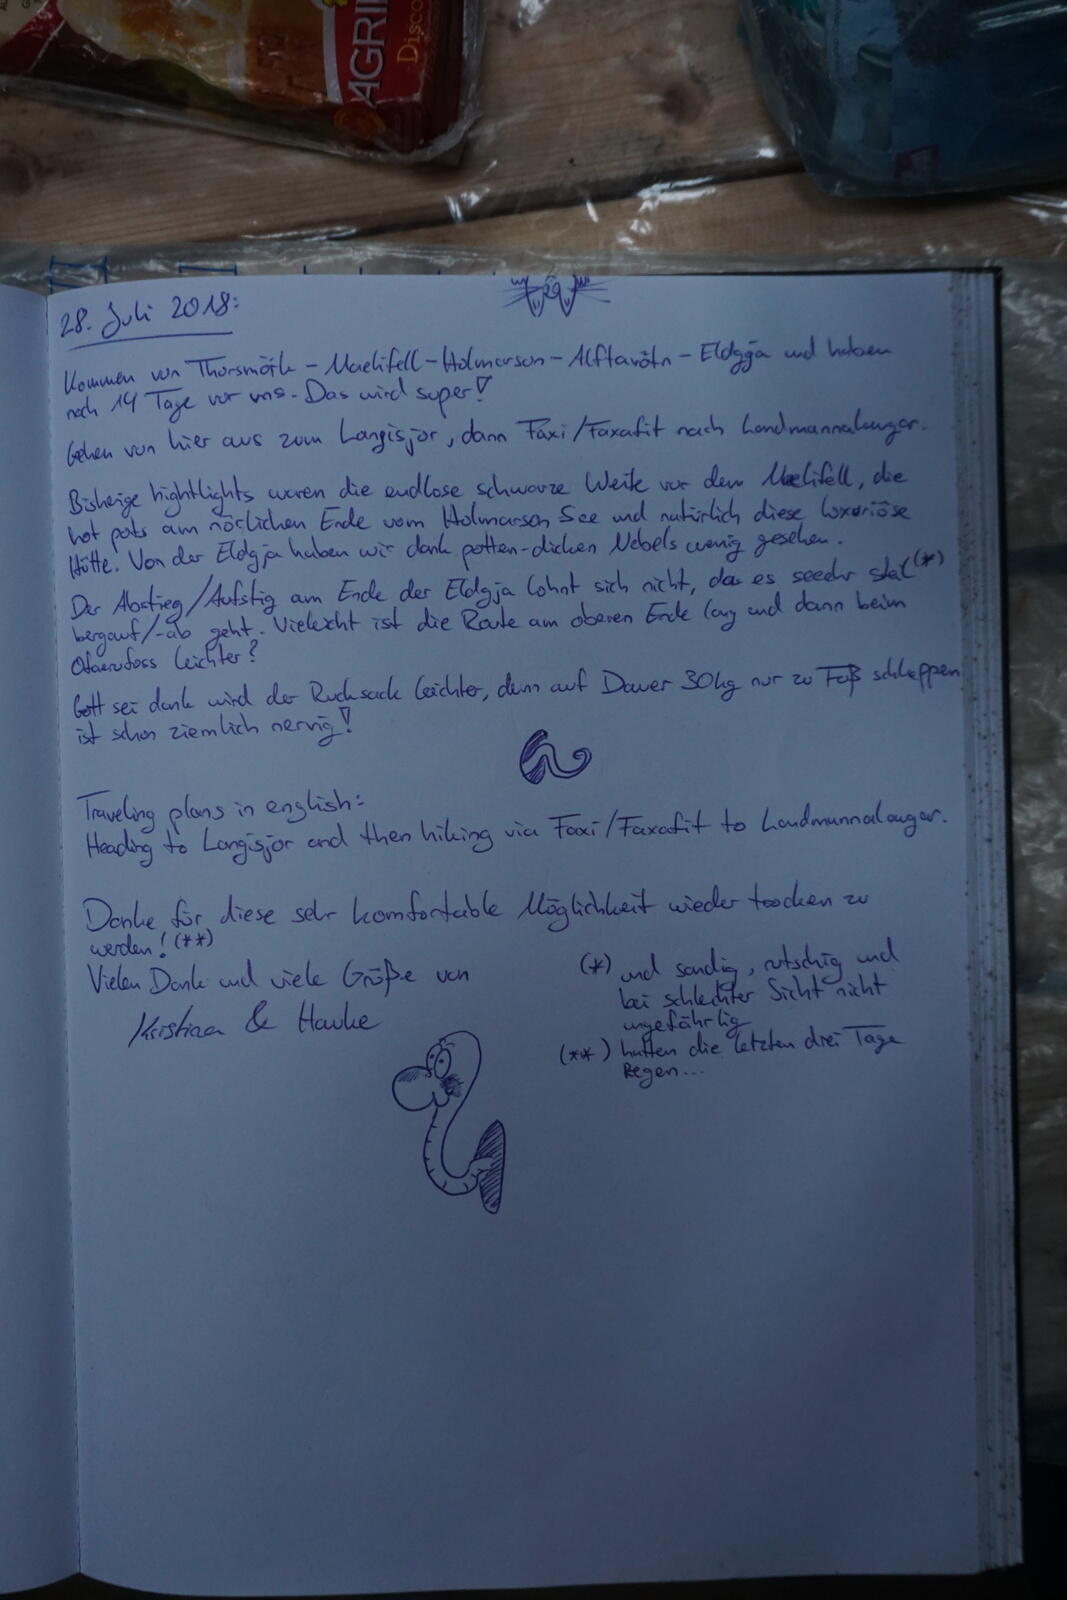 AGRI
Disco
28. Juli 2018:
Kommen von Thorsmörk – Maelifell – Holmarson – Alftavötn – Eldgja und haben
noch 14 Tage vor uns. Das wird super!
Gehen von hier aus zum Langisjor, dann Faxi/Faxafit nach Landmannalaugar.
Bisherige hightlights waren die endlose schwarze Weite vor dem Maelifell, die
hot pots am nörlichen Ende vom Holmarson See und natürlich diese luxuriöse
Hütte. Von der Eldgja haben wir dank potten-dicken Nebels wenig gesehen.
Der Abstieg/Aufstig am Ende der Eldgja lohnt sich nicht, da es seeehr steil (*)
bergauf/-ab geht. Vieleicht ist die Route am oberen Ende lang und dann beim
Ofaerufoss leichter?
Gott sei dank wird der Rucksack leichter, denn auf Dauer 30kg nur zu Fuß schleppen
ist schon ziemlich nervig!
Traveling plans in english:
Heading to Langisjor and then hiking via Faxi/Faxafit to Landmannalaugar.
Danke für diese sehr komfortable Möglichkeit wieder trocken zu
werden! (**)
Vielen Dank und viele Grüße von
Kristina & Hauke
(*) und sandig, rutschig und
bei schlechter Sicht nicht
ungefährlig
(**) hatten die letzten drei Tage
Regen...